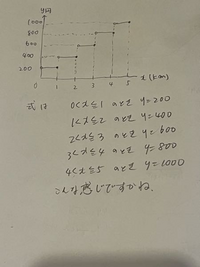 y(円)
1000
800
600
400
200
0 1 2 3 4 5 x(km)
式は 0<x≦1 のとき y=200
1<x≦2 のとき y=400
2<x≦3 のとき y=600
3<x≦4 のとき y=800
4<x≦5 のとき y=1000
こんな感じですかね。